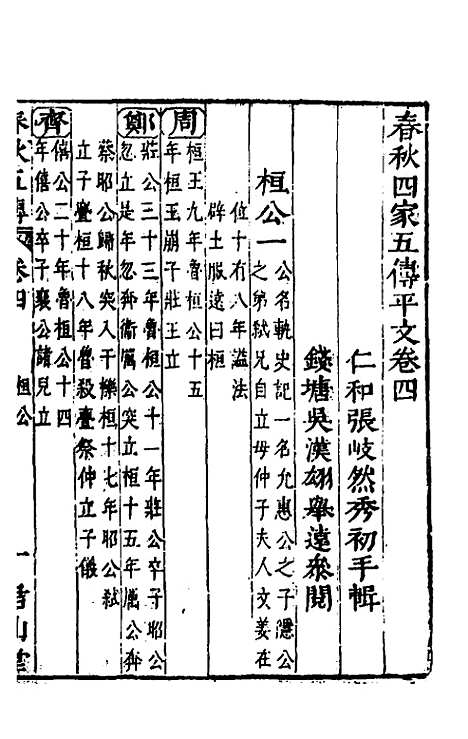 春秋四家五傳平文卷四
仁和張岐然秀初手輯
錢塘吳漢翊舉遠參閱
桓公一
公名軌史記一名允惠公之子隱公
之弟弒兄自立母仲子夫人文姜在
位十有八年謚法
辟土服遠曰桓
周
桓王九年魯桓公十五
年桓王崩子莊王立
鄭
莊公三十三年魯桓公十一年莊公卒子昭公
忽立是年忽奔衛厲公突立桓十五年厲公奔
蔡昭公歸秋突入于櫟桓十七年昭公弒
立子亹桓十八年齊殺亹祭仲立子儀
齊
僖公二十年魯桓公十四
年僖公卒子襄公諸兒立
春秋五傳 卷四 桓公 一